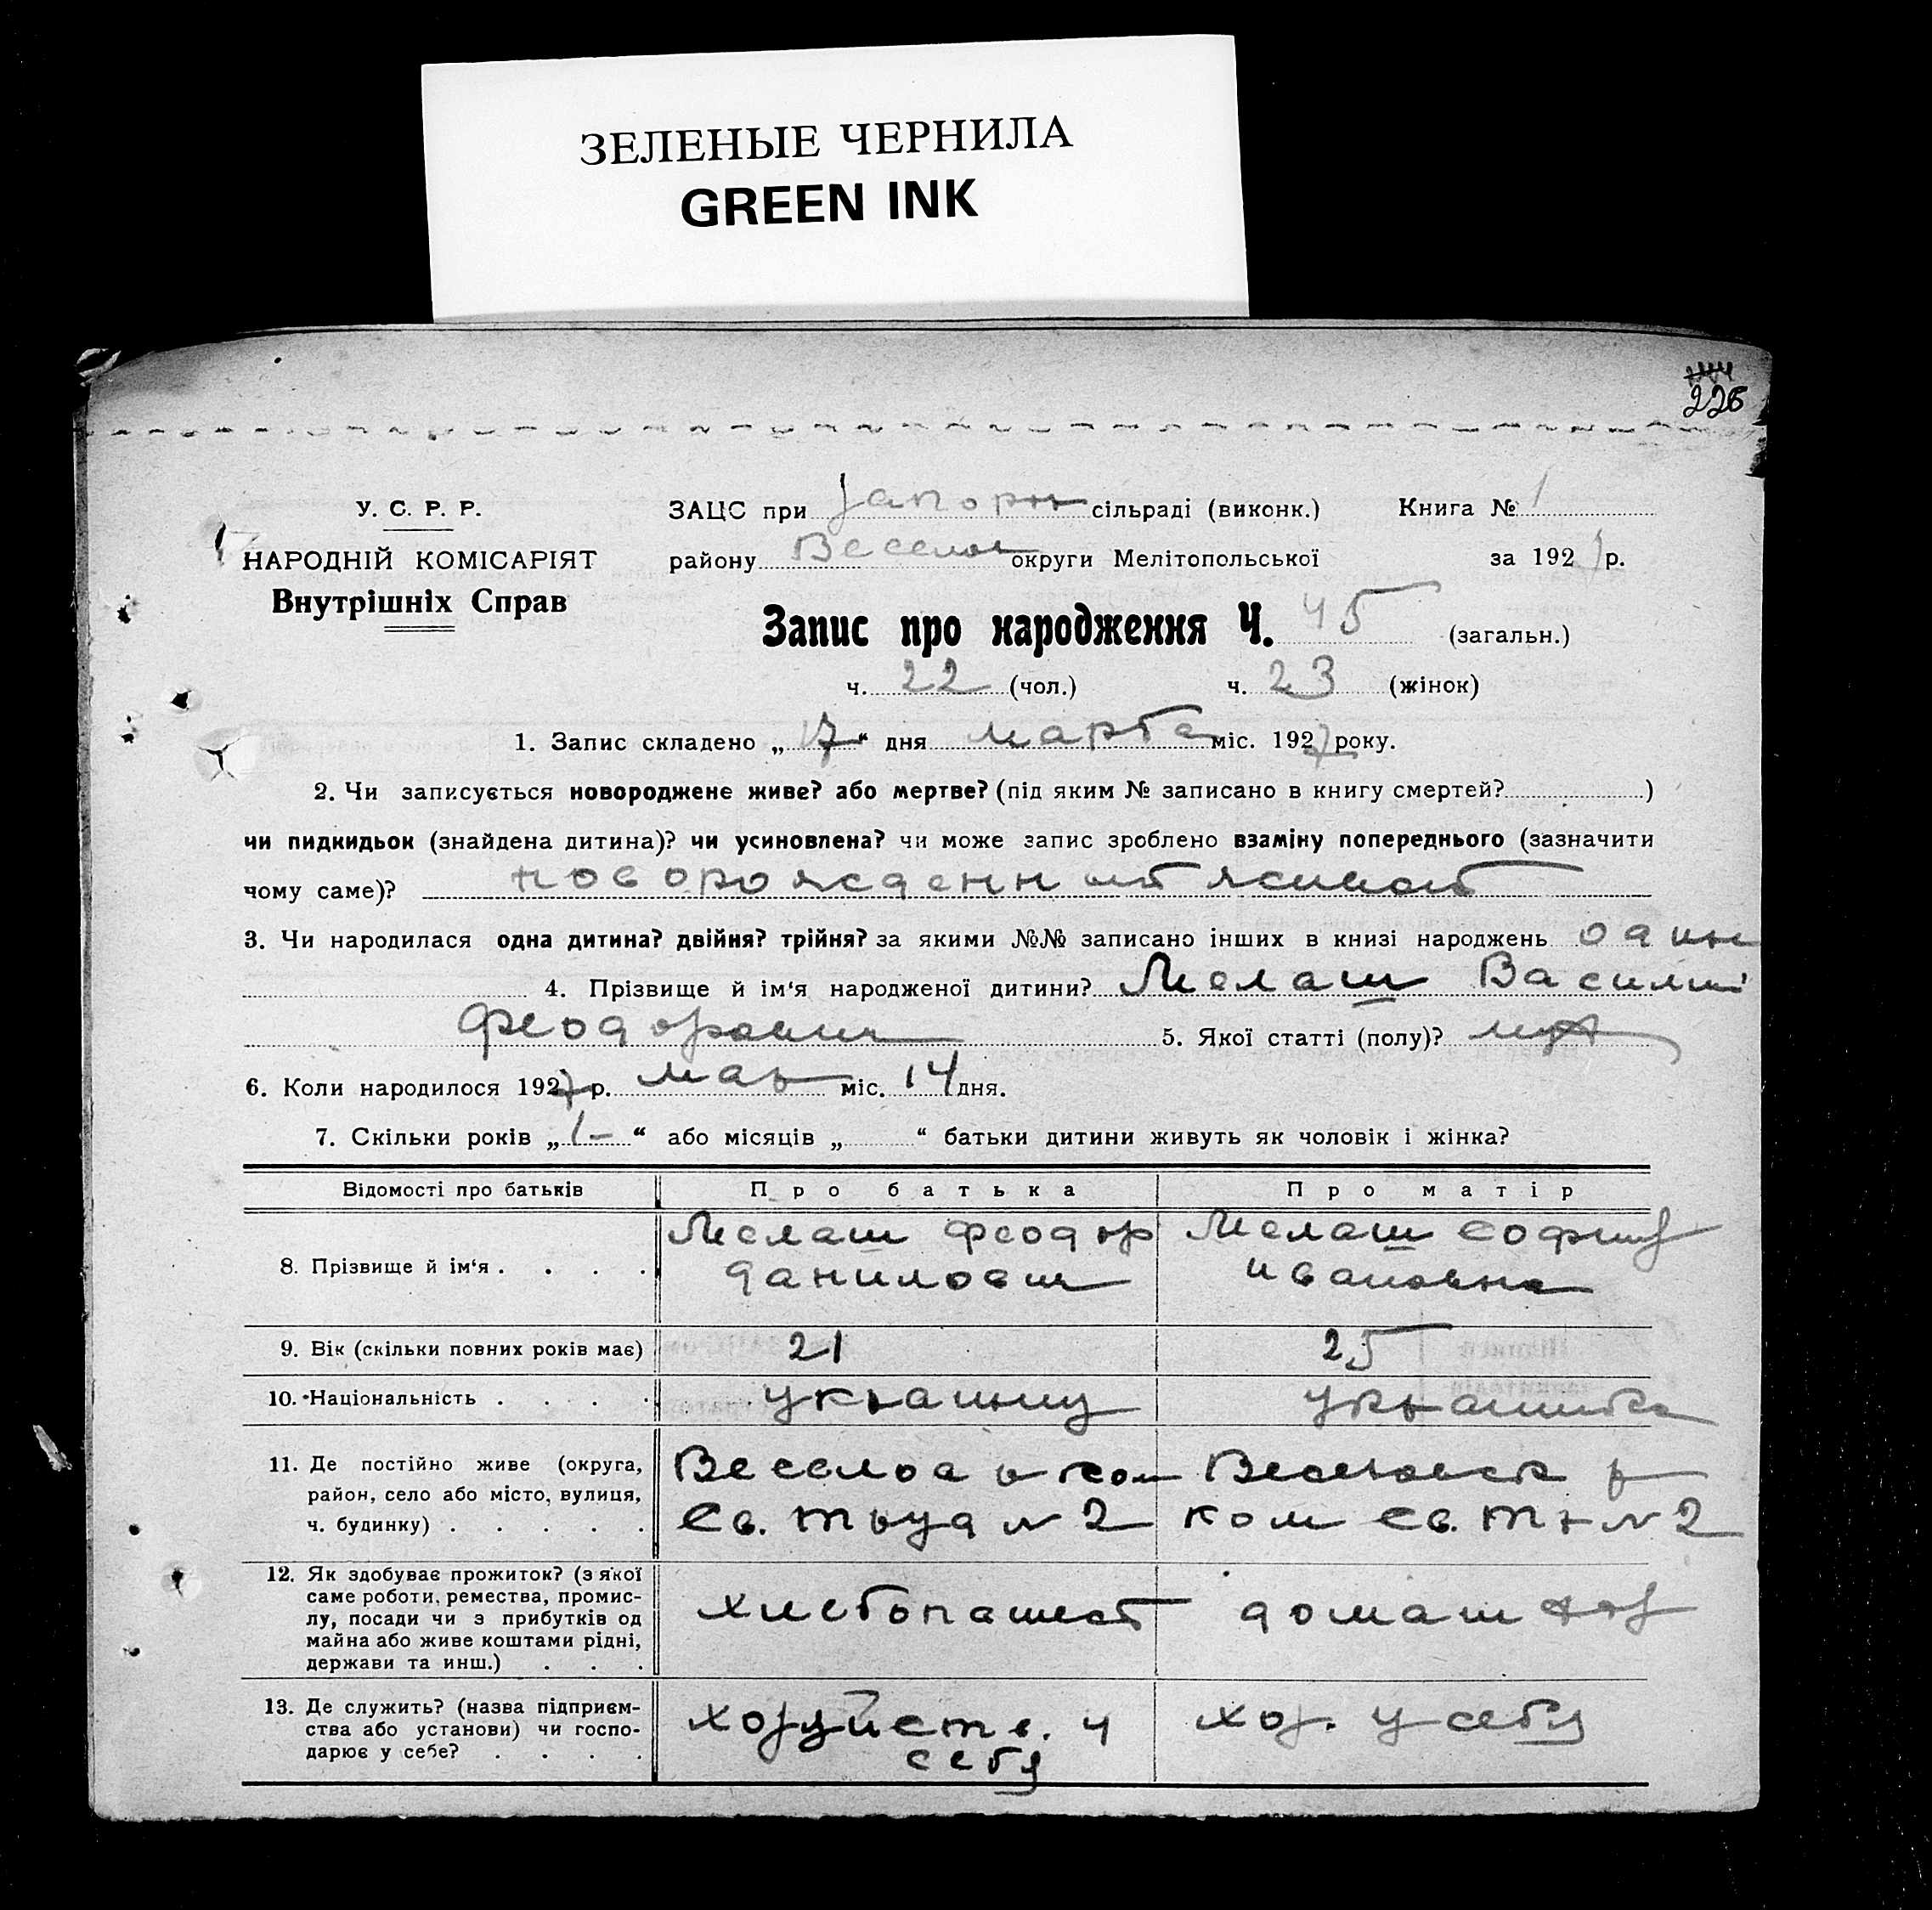 ЗЕЛЕНЫЕ ЧЕРНИЛА
GREEN INK
226
У. С. Р. Р.
НАРОДНІЙ КОМІСАРІЯТ
Внутрішніх Справ
ЗАЦС при Запорж сільраді (виконк.) Книга № 1
району Весело округи Мелітопольської за 192 р.
Запис про народження Ч. 45 (загальн.)
ч. 22 (чол.) ч. 23 (жінок)
1. Запис складено „17“ дня марта міс. 1927 року.
2. Чи записується новороджене живе? або мертве? (під яким № записано в книгу смертей? )
чи пидкидьок (знайдена дитина)? чи усиновлена? чи може запис зроблено взаміну попереднього (зазначити
чому саме)? новорожденный живой
3. Чи народилася одна дитина? двійня? трійня? за якими №№ записано інших в книзі народжень один
4. Прізвище й ім‘я народженої дитини? Мелаш Василий
Феодорович 5. Якої статті (полу)? муж
6. Коли народилося 1927 р. мар міс. 14 дня.
7. Скільки років „1-“ або місяців „ “ батьки дитини живуть як чоловік і жінка?
Відомості про батьків Про батька Про матір
8. Прізвище й ім‘я . . . . Мелаш Феодор Мелаш София
Данилович Ивановна
9. Вік (скільки повних років має) 21 25
10. Національність . . . . украинец украинка
11. Де постійно живе (округа, Веселов р ком Веселовск р
район, село або місто, вулиця,
ч. будинку) . . . . . Св. труда № 2 ком Св. Тр № 2
12. Як здобуває прожиток? (з якої
саме роботи, ремества, промис-
лу, посади чи з прибутків од хлебопашест домаш хоз
майна або живе коштами рідні,
держави та инш.) . . .
13. Де служить? (назва підприєм- хозяйств. у хоз. у себя
ства або установи) чи госпо-
дарює у себе? . . . . себя